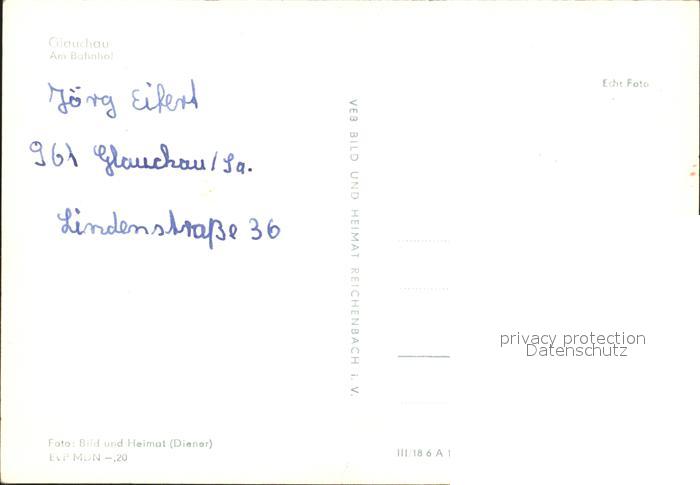 Glauchau
Am Bahnhof
Jörg Eifert
961 Glauchau/Sa.
Lindenstraße 36
Foto: Bild und Heimat (Diener)
EVP MDN —,20
VEB BILD UND HEIMAT REICHENBACH i. V.
Echt Foto
privacy protection
Datenschutz
III/18 6 A 1